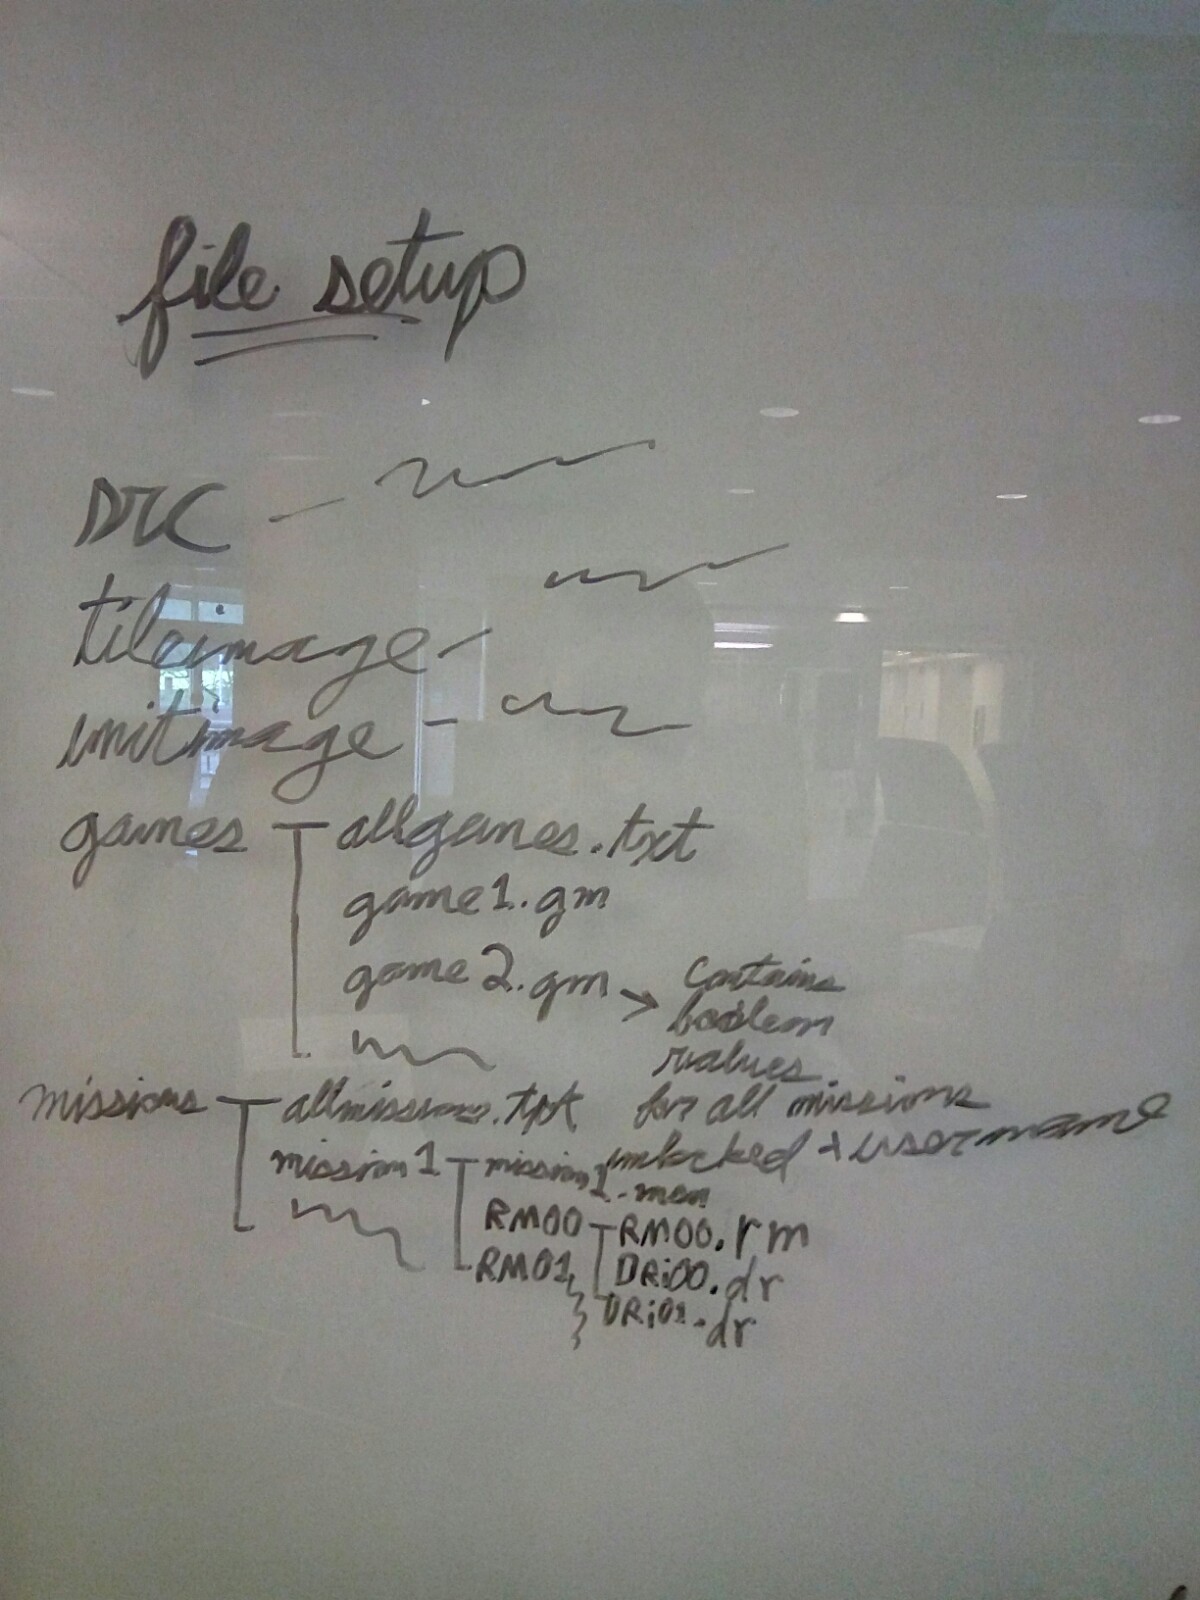 file setup
tileimage -
unitimage -
games allgames.txt
game1.gm
game2.gm → contains
boolean
values
for all missions
unlocked + username
missions allmissions.txt
mission1 mission1.msn
RM00 RM00.rm
RM01 DRi00.dr
DRi01.dr